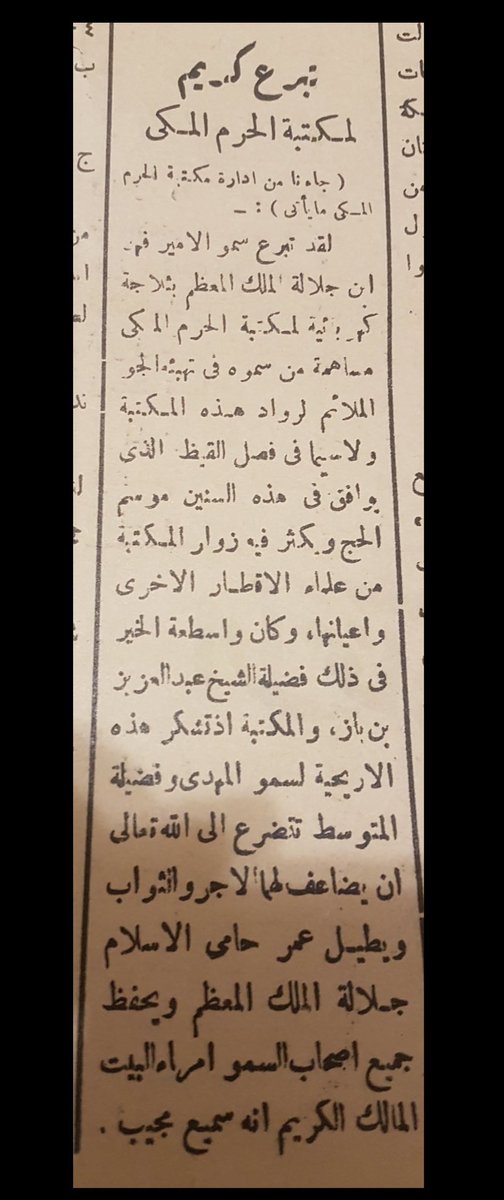 تبرع كريم
لمكتبة الحرم المكى
( جاءنا من ادارة مكتبة الحرم
المكى ما يأتى ) : ــ
لقد تبرع سمو الامير فهد
ابن جلالة الملك المعظم بثلاجة
كهربائية لمكتبة الحرم المكى
مساهمة من سموه فى تهيئة الجو
الملائم لرواد هذه المكتبة
ولاسيما فى فصل القيظ الذى
يوافق فى هذه السنين موسم
الحج ويكثر فيه زوار المكتبة
من علماء الاقطار الاخرى
واعيانها، وكان واسطعة الخير
فى ذلك فضيلة الشيخ عبدالعزيز
بن باز، والمكتبة اذ تشكر هذه
الاريحية لسمو المهدى وفضيلة
المتوسط تتضرع الى الله تعالى
ان يضاعف لهما الاجر والثواب
ويطيل عمر حامى الاسلام
جلالة الملك المعظم ويحفظ
جميع اصحاب السمو امراء البيت
المالك الكريم انه سميع مجيب .